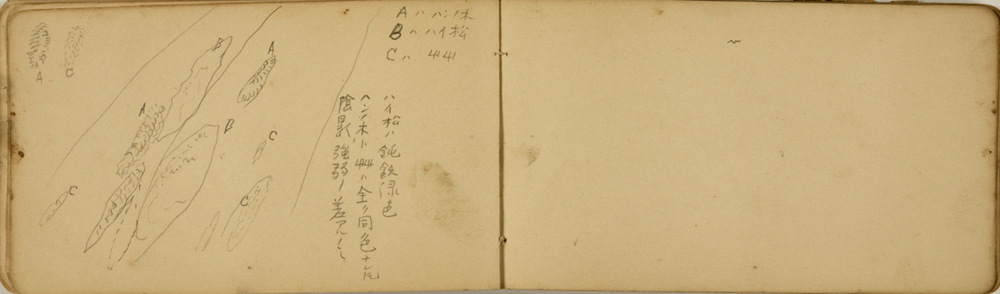 A ハ ハンノ木
B ハ ハイ松
C ハ 艸
ハイ松ハ鈍鉄緑色
ハンノ木ト艸ハ全ク同色ナレ𪜈
陰影ノ強弱ノ差アルノミ
A
C
B
A
A
B
C
C
C